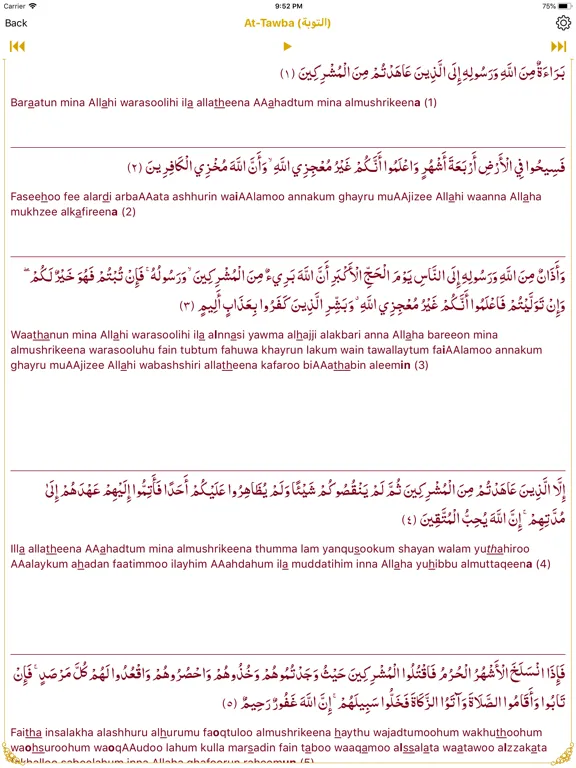 Carrier 9:52 PM 75%
Back At-Tawba (التوبة)
بَرَاءَةٌ مِنَ اللَّهِ وَرَسُولِهِ إِلَى الَّذِينَ عَاهَدْتُمْ مِنَ الْمُشْرِكِينَ (١)
Baraatun mina Allahi warasoolihi ila allatheena AAahadtum mina almushrikeena (1)
فَسِيحُوا فِي الْأَرْضِ أَرْبَعَةَ أَشْهُرٍ وَاعْلَمُوا أَنَّكُمْ غَيْرُ مُعْجِزِي اللَّهِ ۙ وَأَنَّ اللَّهَ مُخْزِي الْكَافِرِينَ (٢)
Faseehoo fee alardi arbaAAata ashhurin waiAAlamoo annakum ghayru muAAjizee Allahi waanna Allaha
mukhzee alkafireena (2)
وَأَذَانٌ مِنَ اللَّهِ وَرَسُولِهِ إِلَى النَّاسِ يَوْمَ الْحَجِّ الْأَكْبَرِ أَنَّ اللَّهَ بَرِيءٌ مِنَ الْمُشْرِكِينَ ۙ وَرَسُولُهُ ۚ فَإِنْ تُبْتُمْ فَهُوَ خَيْرٌ لَكُمْ ۖ
وَإِنْ تَوَلَّيْتُمْ فَاعْلَمُوا أَنَّكُمْ غَيْرُ مُعْجِزِي اللَّهِ ۗ وَبَشِّرِ الَّذِينَ كَفَرُوا بِعَذَابٍ أَلِيمٍ (٣)
Waathanun mina Allahi warasoolihi ila alnnasi yawma alhajji alakbari anna Allaha bareeon mina
almushrikeena warasooluhu fain tubtum fahuwa khayrun lakum wain tawallaytum faiAAlamoo annakum
ghayru muAAjizee Allahi wabashshiri allatheena kafaroo biAAathabin aleemin (3)
إِلَّا الَّذِينَ عَاهَدْتُمْ مِنَ الْمُشْرِكِينَ ثُمَّ لَمْ يَنْقُصُوكُمْ شَيْئًا وَلَمْ يُظَاهِرُوا عَلَيْكُمْ أَحَدًا فَأَتِمُّوا إِلَيْهِمْ عَهْدَهُمْ إِلَىٰ
مُدَّتِهِمْ ۚ إِنَّ اللَّهَ يُحِبُّ الْمُتَّقِينَ (٤)
Illa allatheena AAahadtum mina almushrikeena thumma lam yanqusookum shayan walam yuthahiroo
AAalaykum ahadan faatimmoo ilayhim AAahdahum ila muddatihim inna Allaha yuhibbu almuttaqeena (4)
فَإِذَا انْسَلَخَ الْأَشْهُرُ الْحُرُمُ فَاقْتُلُوا الْمُشْرِكِينَ حَيْثُ وَجَدْتُمُوهُمْ وَخُذُوهُمْ وَاحْصُرُوهُمْ وَاقْعُدُوا لَهُمْ كُلَّ مَرْصَدٍ ۚ فَإِنْ
تَابُوا وَأَقَامُوا الصَّلَاةَ وَآتَوُا الزَّكَاةَ فَخَلُّوا سَبِيلَهُمْ ۚ إِنَّ اللَّهَ غَفُورٌ رَحِيمٌ (٥)
Faitha insalakha alashhuru alhurumu faoqtuloo almushrikeena haythu wajadtumoohum wakhuthoohum
waohsuroohum waoqAAudoo lahum kulla marsadin fain taboo waaqamoo alssalata waatawoo alzzakata
fakhalloo sabeelahum inna Allaha ghafoorun raheemun (5)